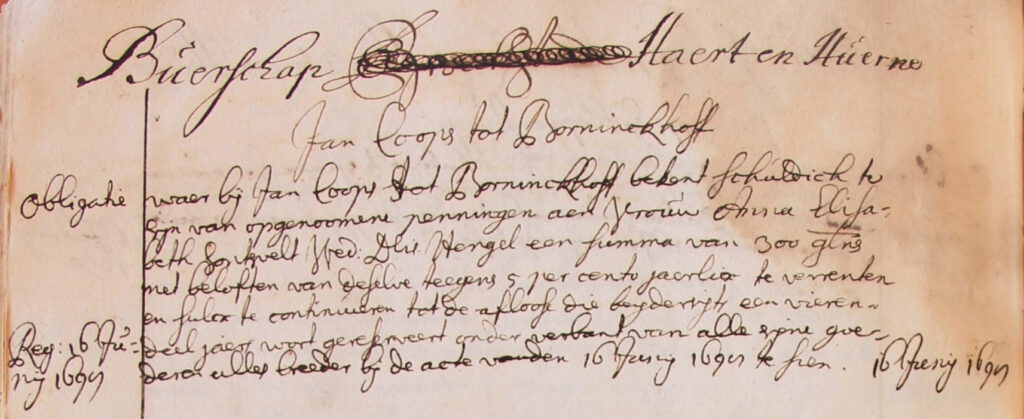 Buerschap Haert en Huerne
Jan Coops tot Borninckhoff
Obligatie waer bij Jan Coops tot Borninckhoff bekent schuldick te
sijn van opgenoomene penningen aen vrouw Anna Elisa-
beth Wed: Hengel een summa van 300 glns
met beloften van deselve teegens 5 per cento jaerlix te verrenten
en sulx te continuieren tot de afloose die beijdersijts een vieren-
Reg: 16 Ju- deel jaers wort gereserveert onder verbant van alle sijne goe-
nij 1695 deren alles breeder bij de acte vanden 16 Junij 1695 te sien. 16 Junij 1695